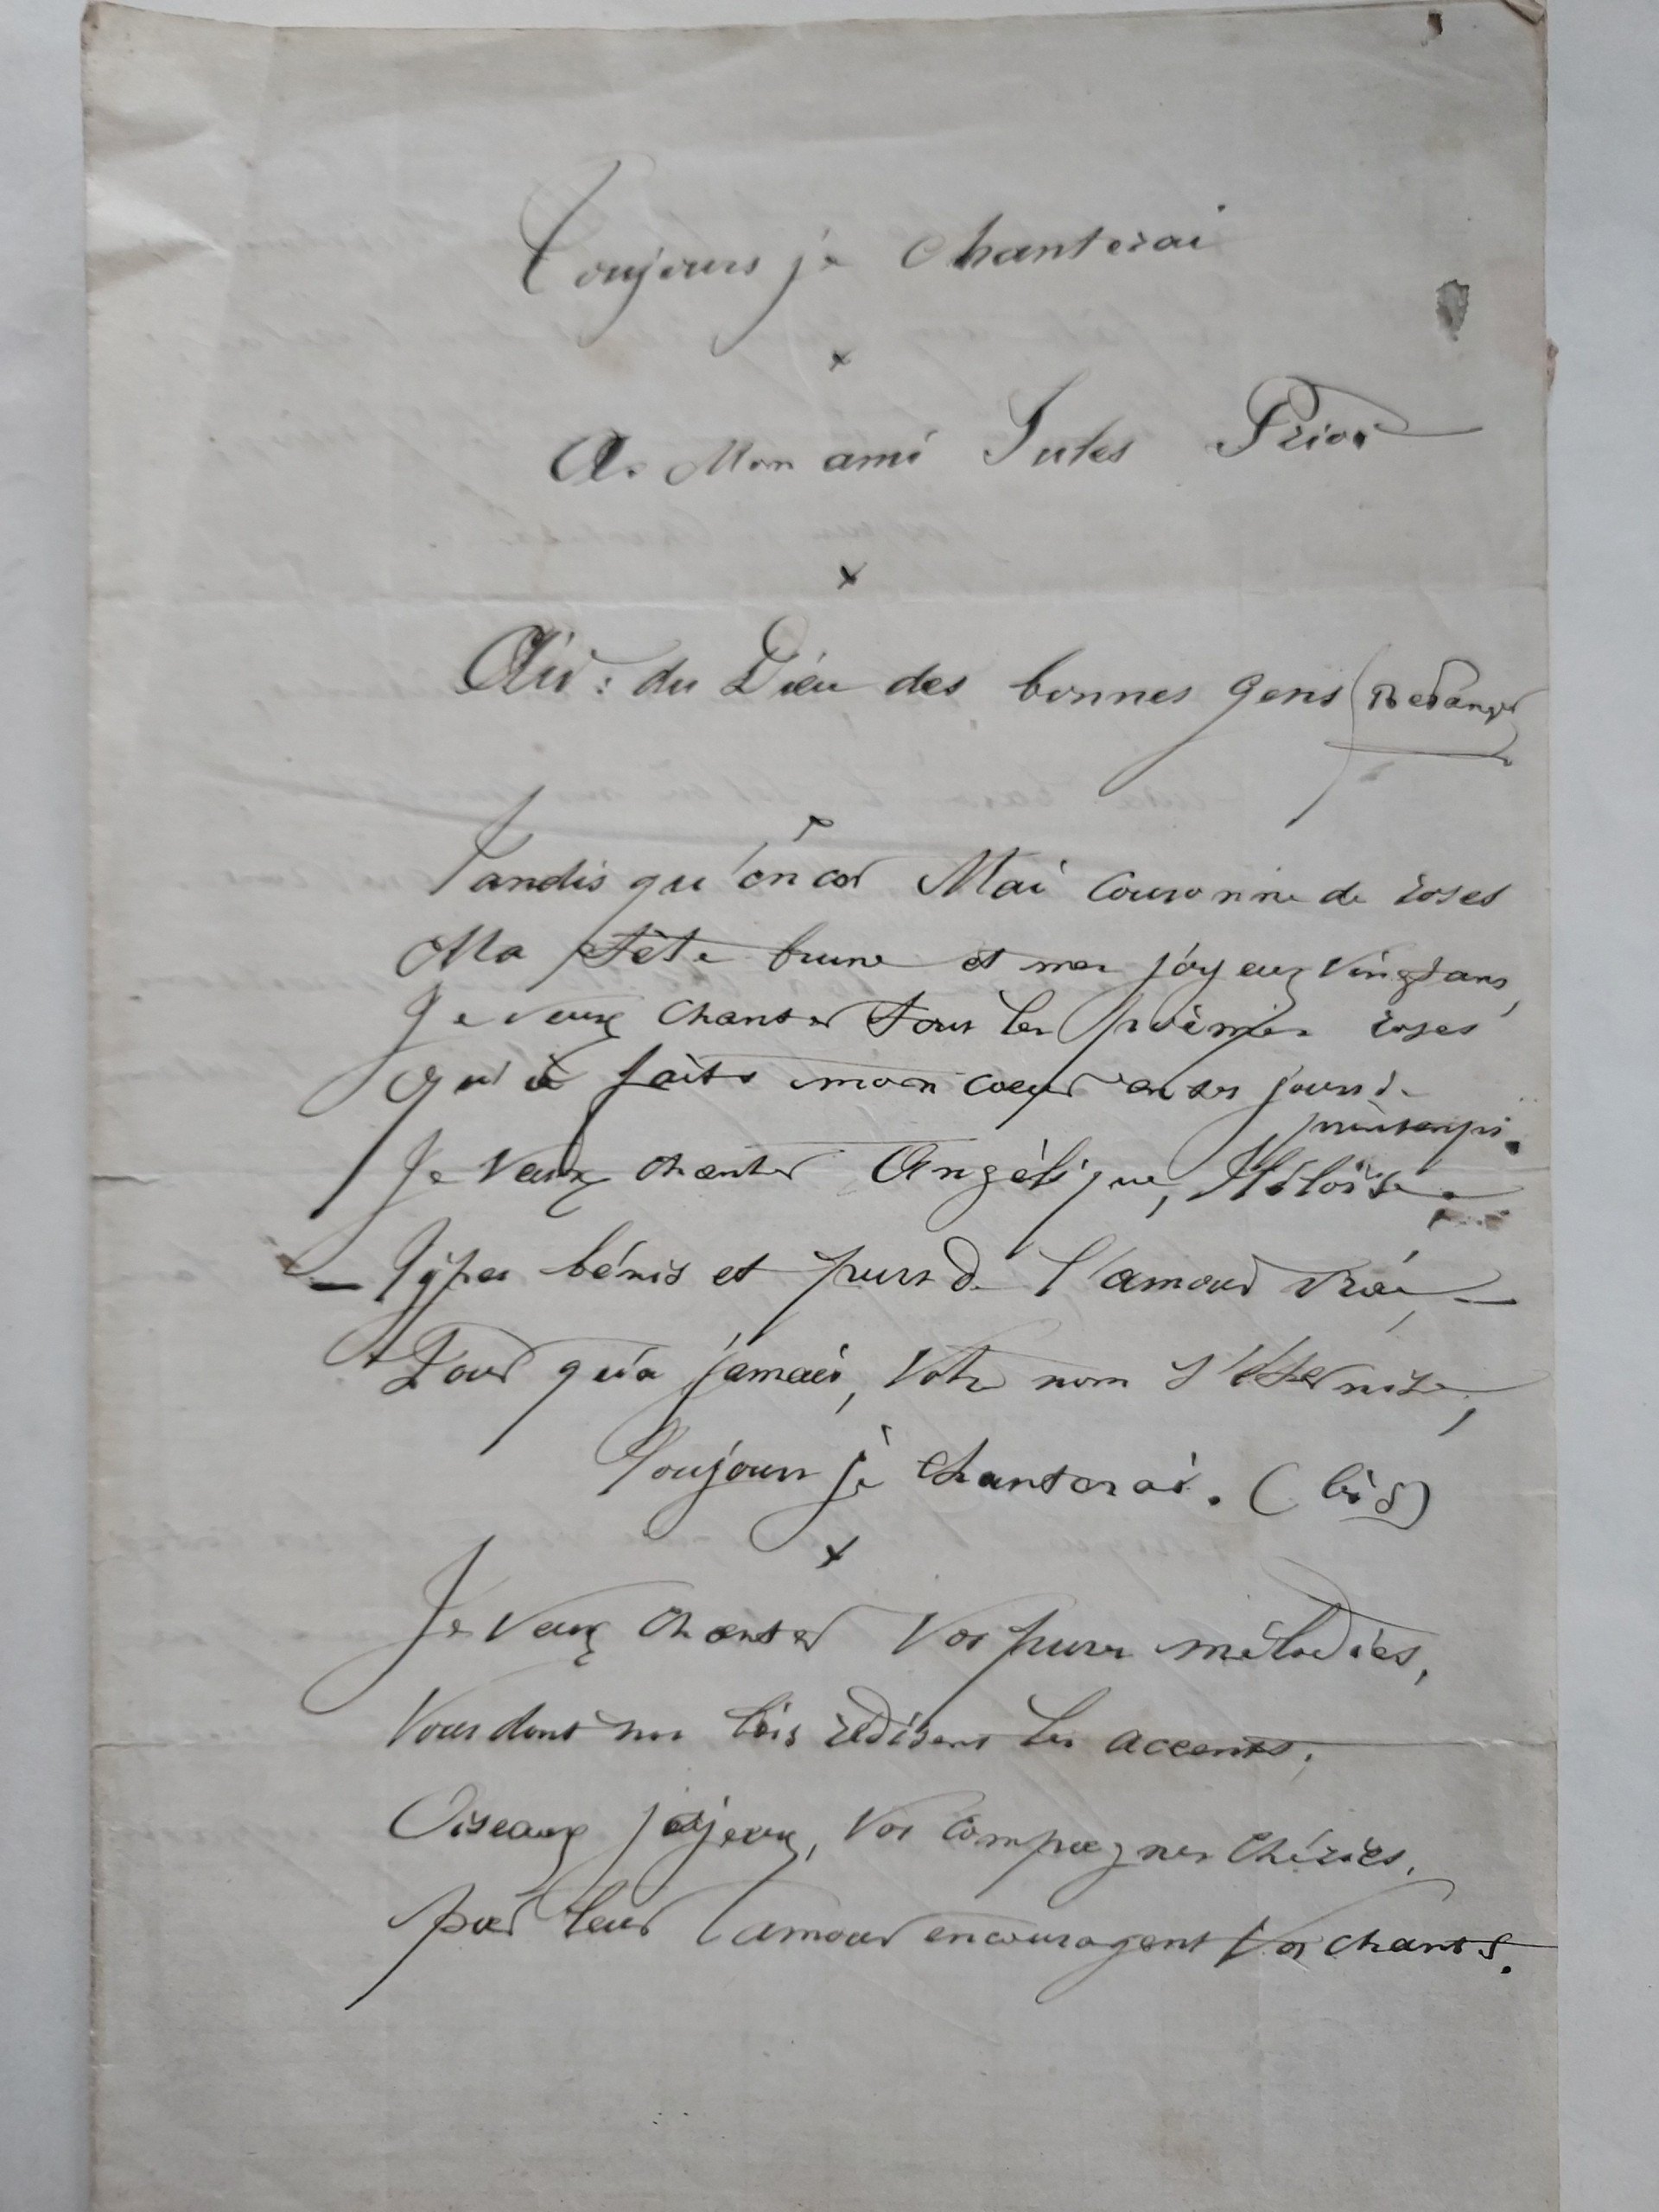 Toujours je chanterai
x
A. Mon ami Jules Prior
x
Air : du Dieu des bonnes gens (Béranger)
Tandis qu'encor Mai couronne de roses
Ma tête brune et mes joyeux vingt ans,
Je veux chanter tous les poèmes roses
Qu'a faits mon coeur en ses jours de
printemps.
Je veux chanter Angélique, Héloïse,
Types bénis et purs de l'amour vrai,
Pour qu'à jamais, votre nom s'éternise,
Toujours je chanterai. (bis)
x
Je veux chanter vos pures mélodies,
Vous dont nos bois redisent les accents,
Oiseaux joyeux, vos compagnes chéries,
par leur amour encouragent vos chants.